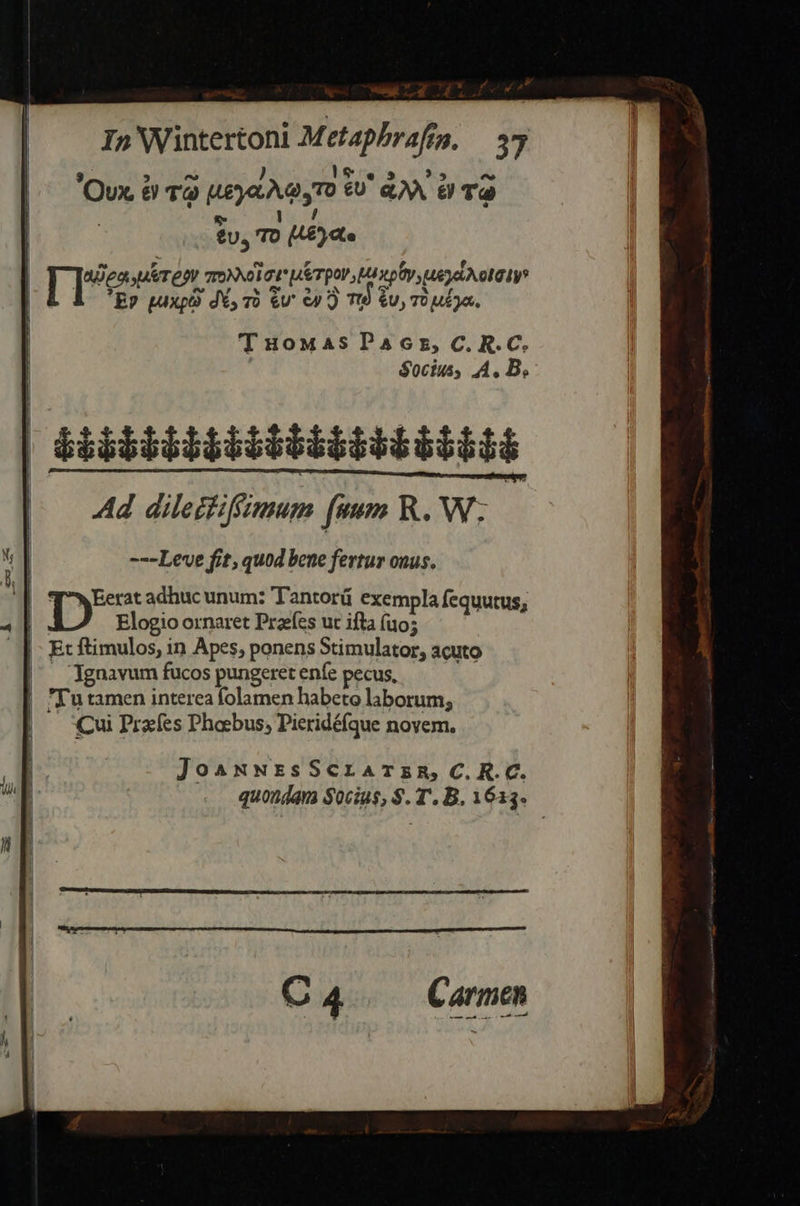 In Wintertoni Metaphrasin. 37
Οὐκ ἐν τῷ μεγάλῳ, τὸ εὖ· ἀλλ' ἐν τῷ
εὖ, τὸ μέγα.
μέτρον πολλοῖσι· μέτρον, μικρὸν, μεγάλοισιν·
Ἐν μικρῷ δὲ, τὸ εὖ· ἐν ᾧ τῷ εὖ, τὸ μέγα.
THOMAS PAGE, C. R. C.
Socius, A. B.
Ad dilectissimum suum R. W:
---Leve fit, quod bene fertur onus.
DEerat adhuc unum: Tantorū exempla sequutus,
Elogio ornaret Præses ut ista suo;
Et stimulos, in Apes, ponens Stimulator, acuto
Ignavum fucos pungeret ense pecus.
Tu tamen interea solamen habeto laborum,
Cui Præses Phœbus, Pieridésque novem.
JOANNES SCLATER, C. R. C.
quondam Socius, S. T. B. 1633.
C 4 Carmen